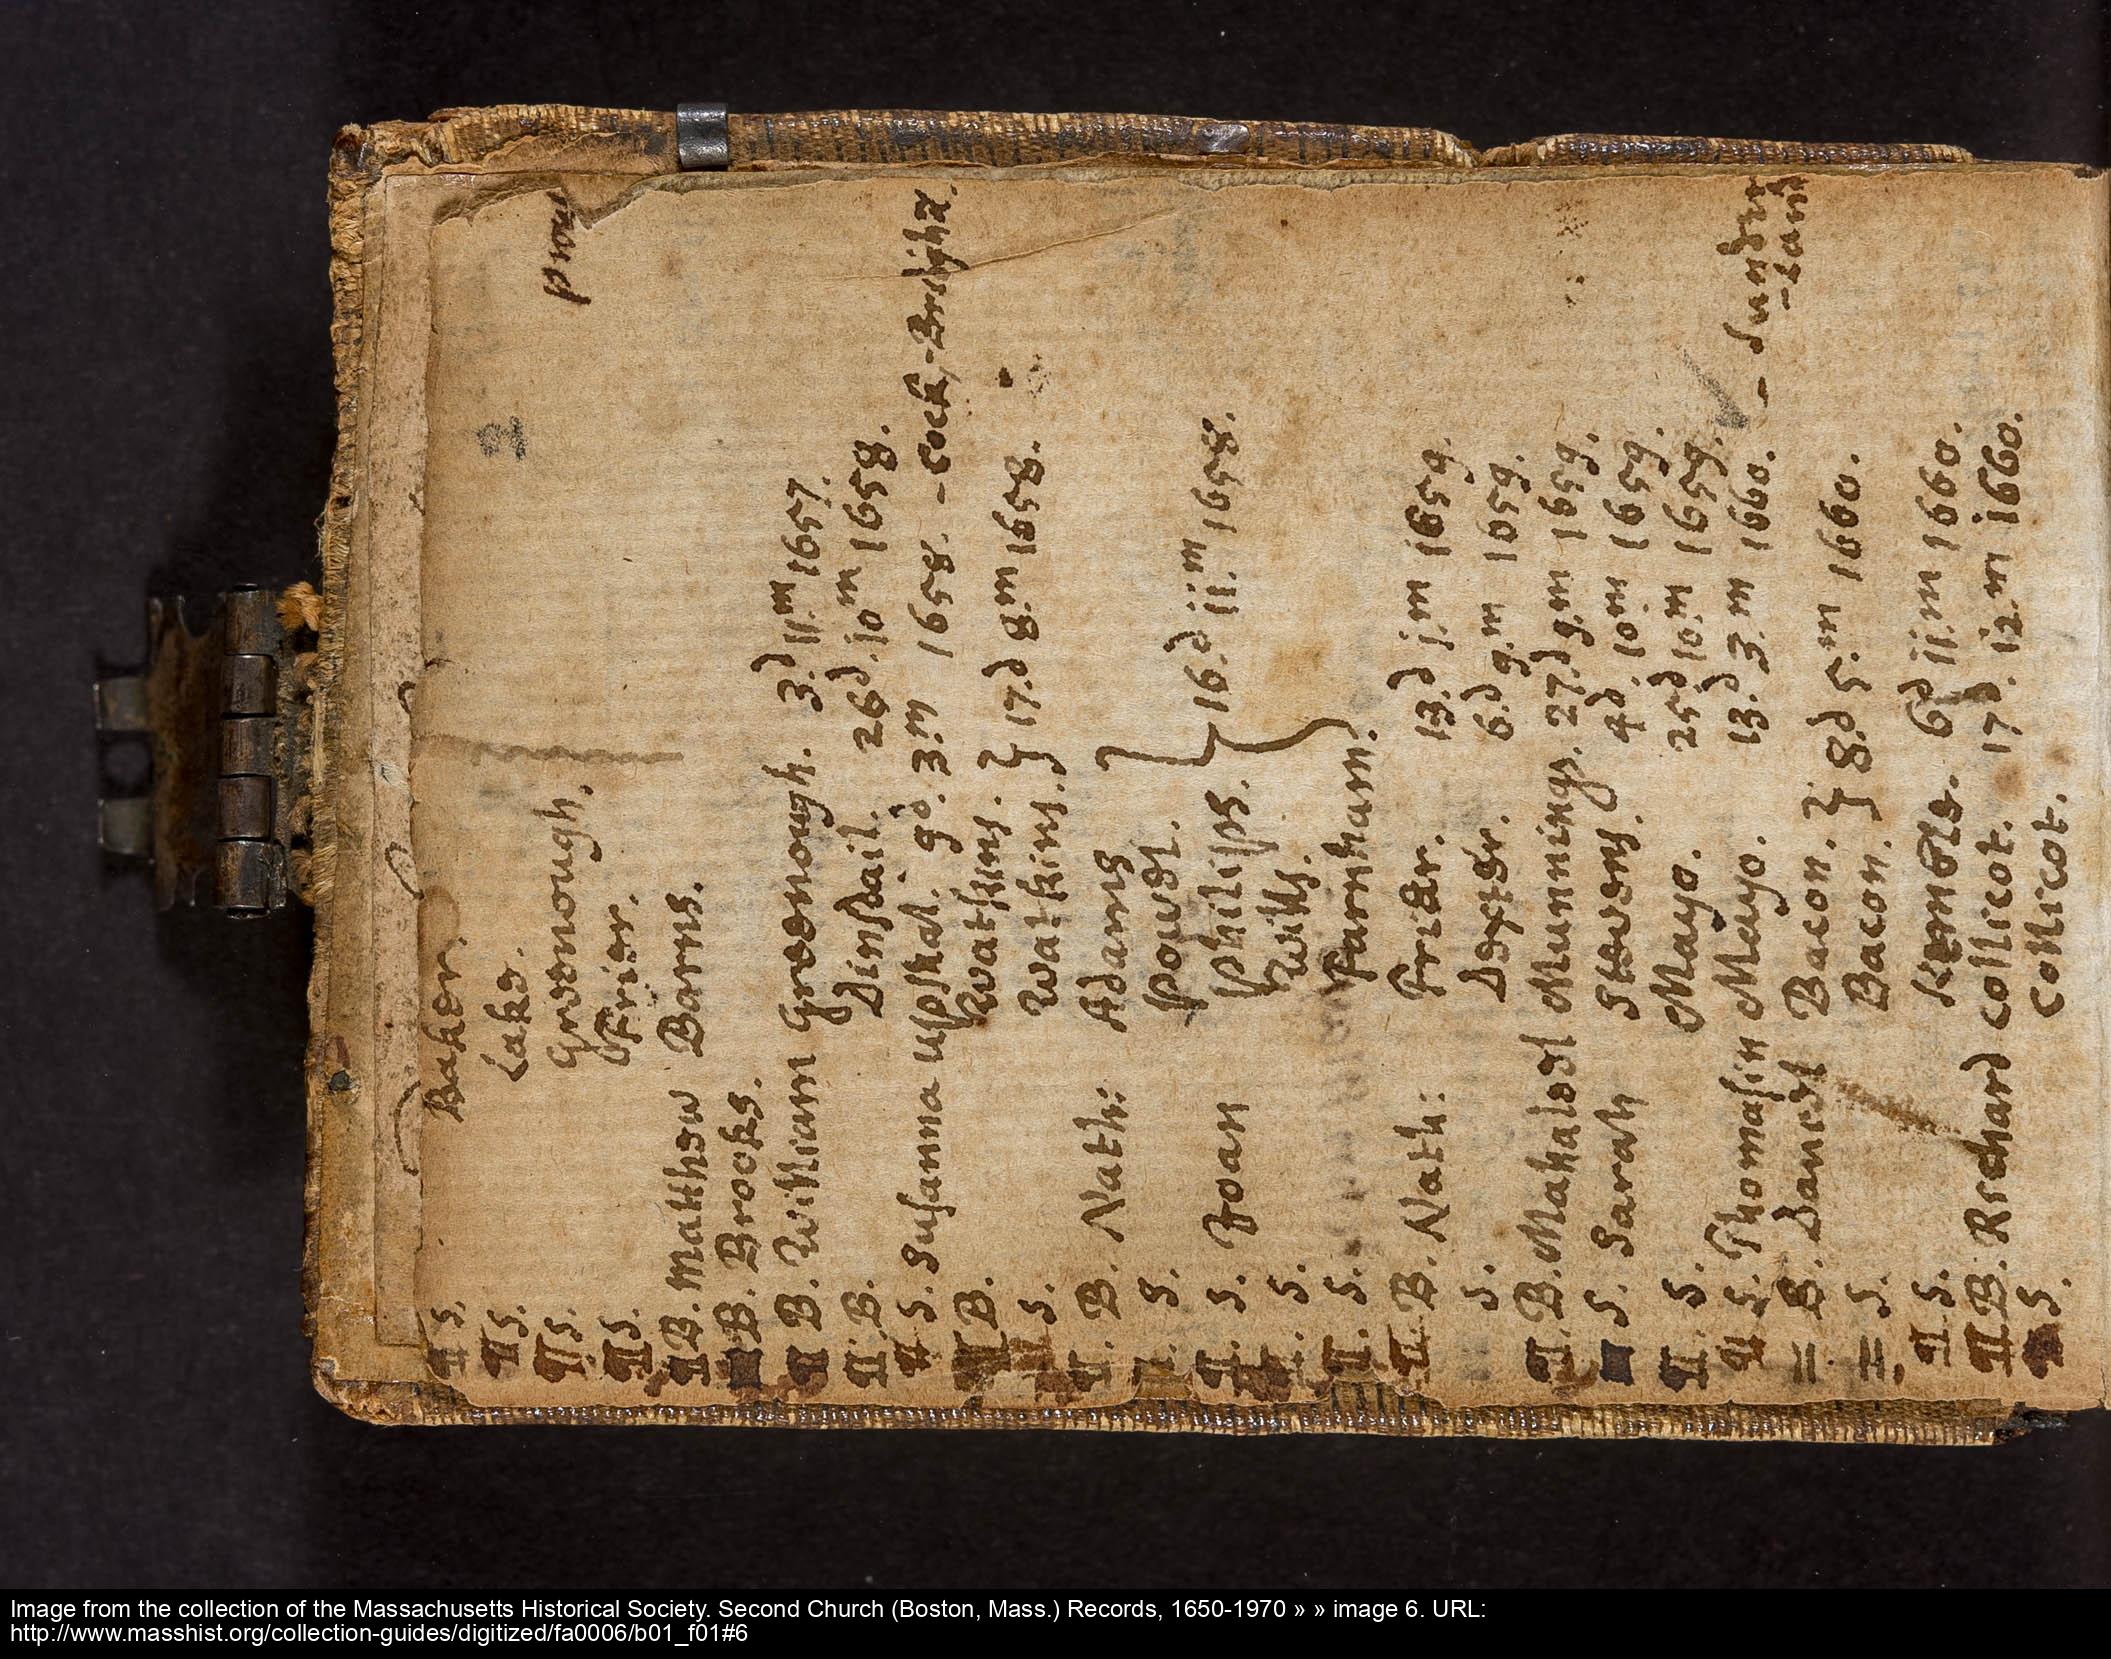 2
S. Baker.
S. Lake.
S. Greenough. prout
S. Frier.
B. Matthew Barns.
B. Brooks.
B. William Greenough. 3.d 11.m 1657.
B. Dinsdail. 26d. 10m 1658.
S. Susanna Upshal. 9d. 3.m 1658. - Cock, - Bright.
B. Watkins. } 17.d 8.m 1658.
S. Watkins. }
B. Nath: Adams
S. powel.
S. Joan philips. } 16.d 11.m 1658.
S. Wills.
S. Farnham.
B. Nath: Frier. 13.d 1.m 1659.
S. Dexter. 6.d 9.m 1659.
B. Mahaleel Munnings. 27.d 9.m 1659.
S. Sarah Stevens. 4d. 10.m 1659.
S. Mayo. 25d 10.m 1659.
S. Thomasin Mayo. 13.d 3.m 1660.
B. Daniel Bacon. } 8.d 5.m 1660.
S. Bacon. }
S. Kemble. 6d 11.m 1660.
B. Richard Collicot. 17d. 12.m 1660.
S. Collicot.
Image from the collection of the Massachusetts Historical Society. Second Church (Boston, Mass.) Records, 1650-1970 » » image 6. URL:
http://www.masshist.org/collection-guides/digitized/fa0006/b01_f01#6